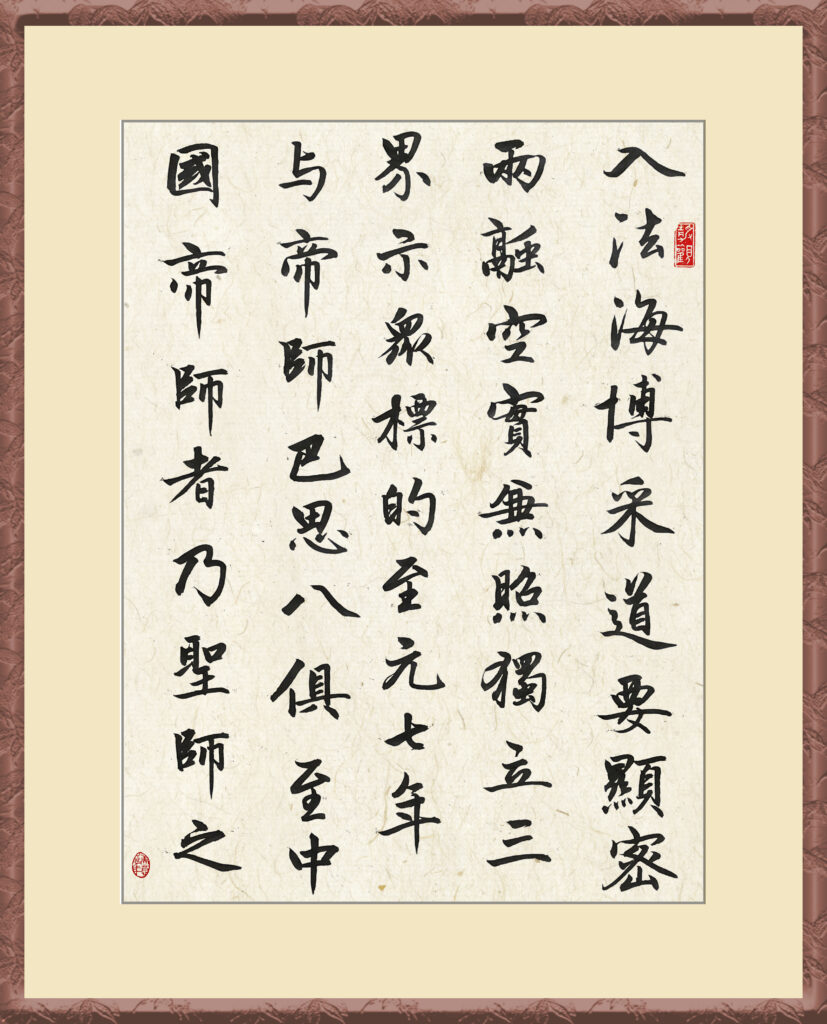 入法海博采道要顯密
兩融空實兼照獨立三
界示眾標的至元七年
与帝師巴思八俱至中
國帝師者乃聖師之